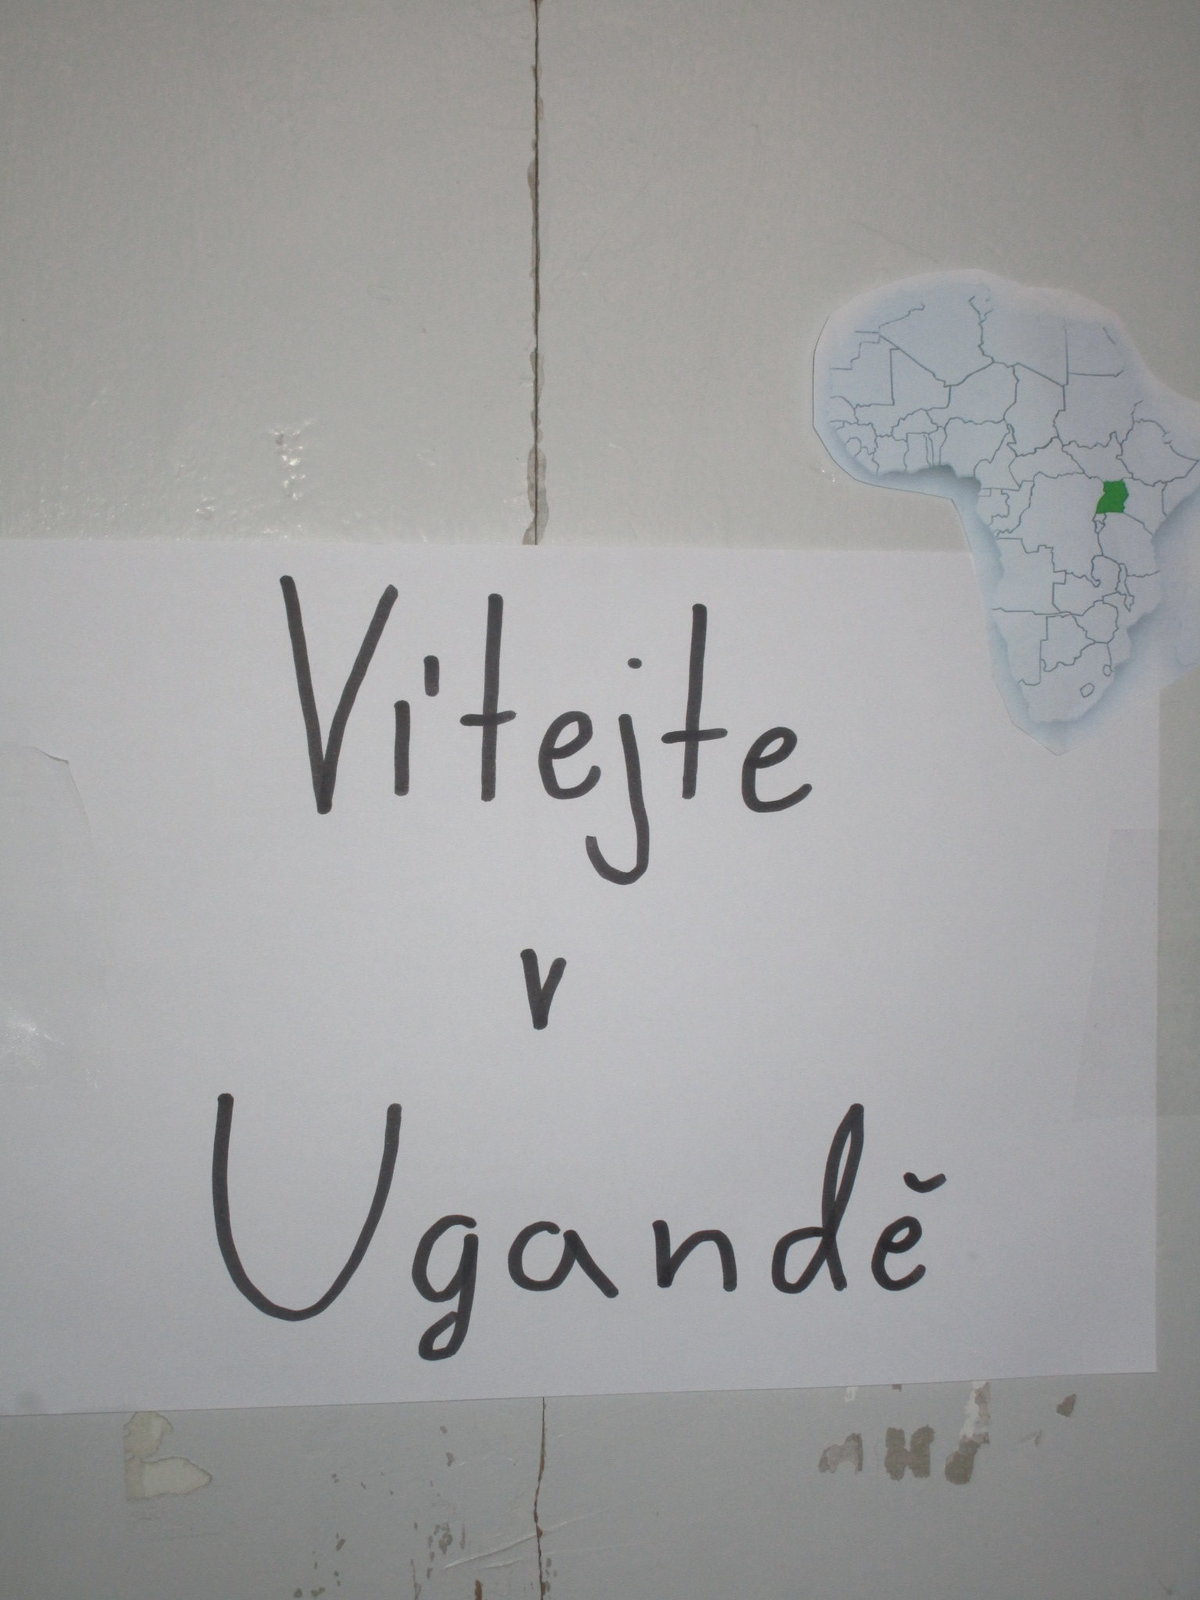 Vítejte
v
Ugandě